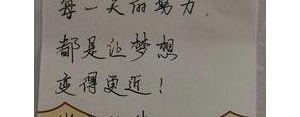 每一天的努力，
都是让梦想
变得更近！